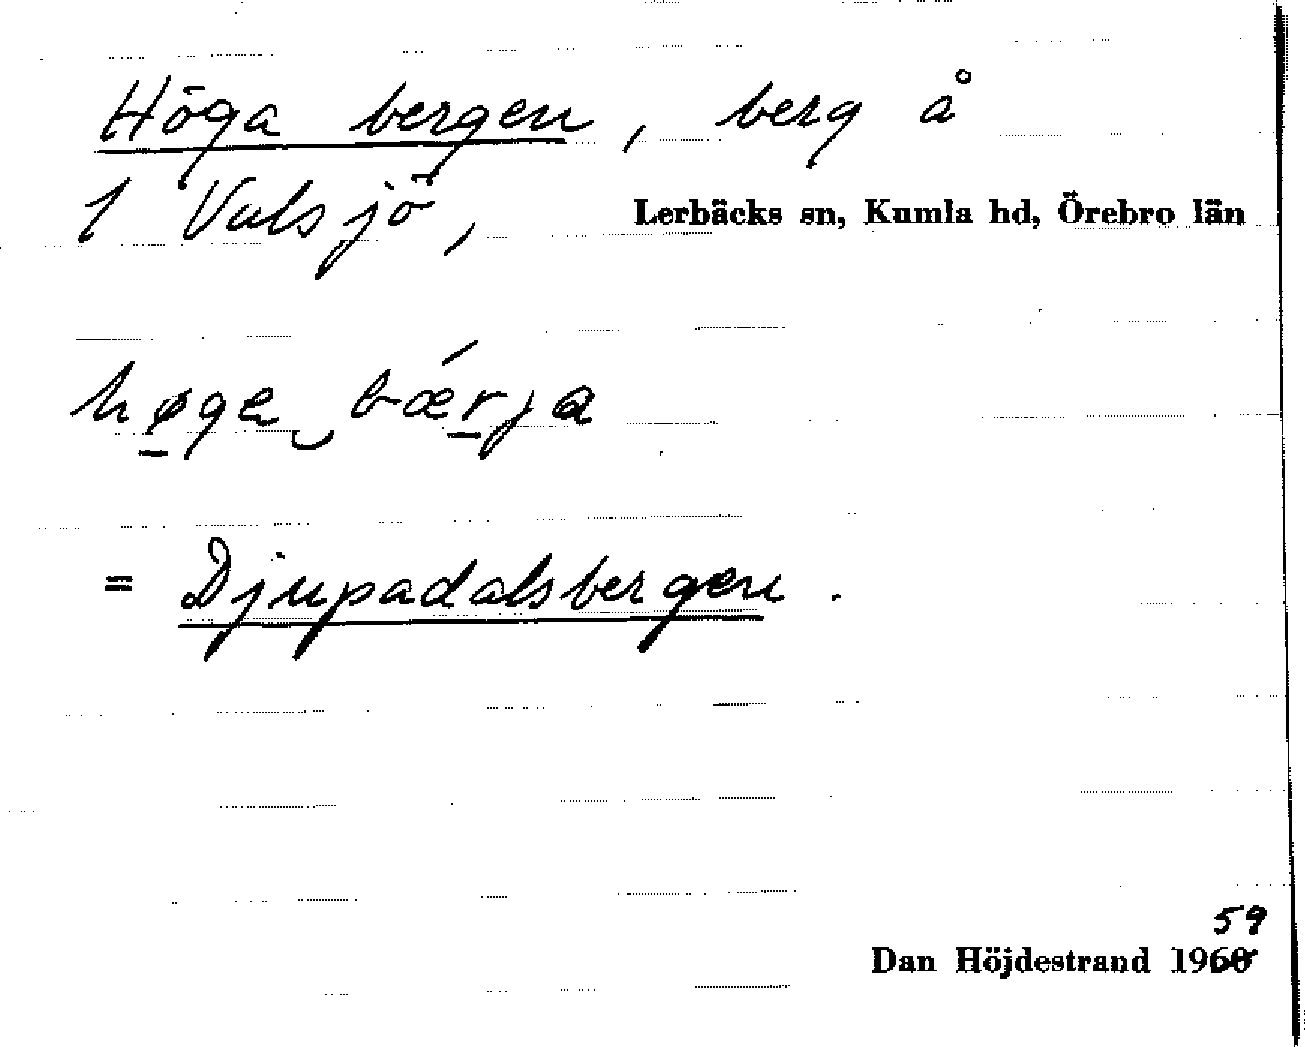 Höga bergen, berg å
1 Valsjö, Lerbäcks sn, Kumla hd, Örebro län
høga‿bǽrja
= Djupadalsbergen.
59
Dan Höjdestrand 1960